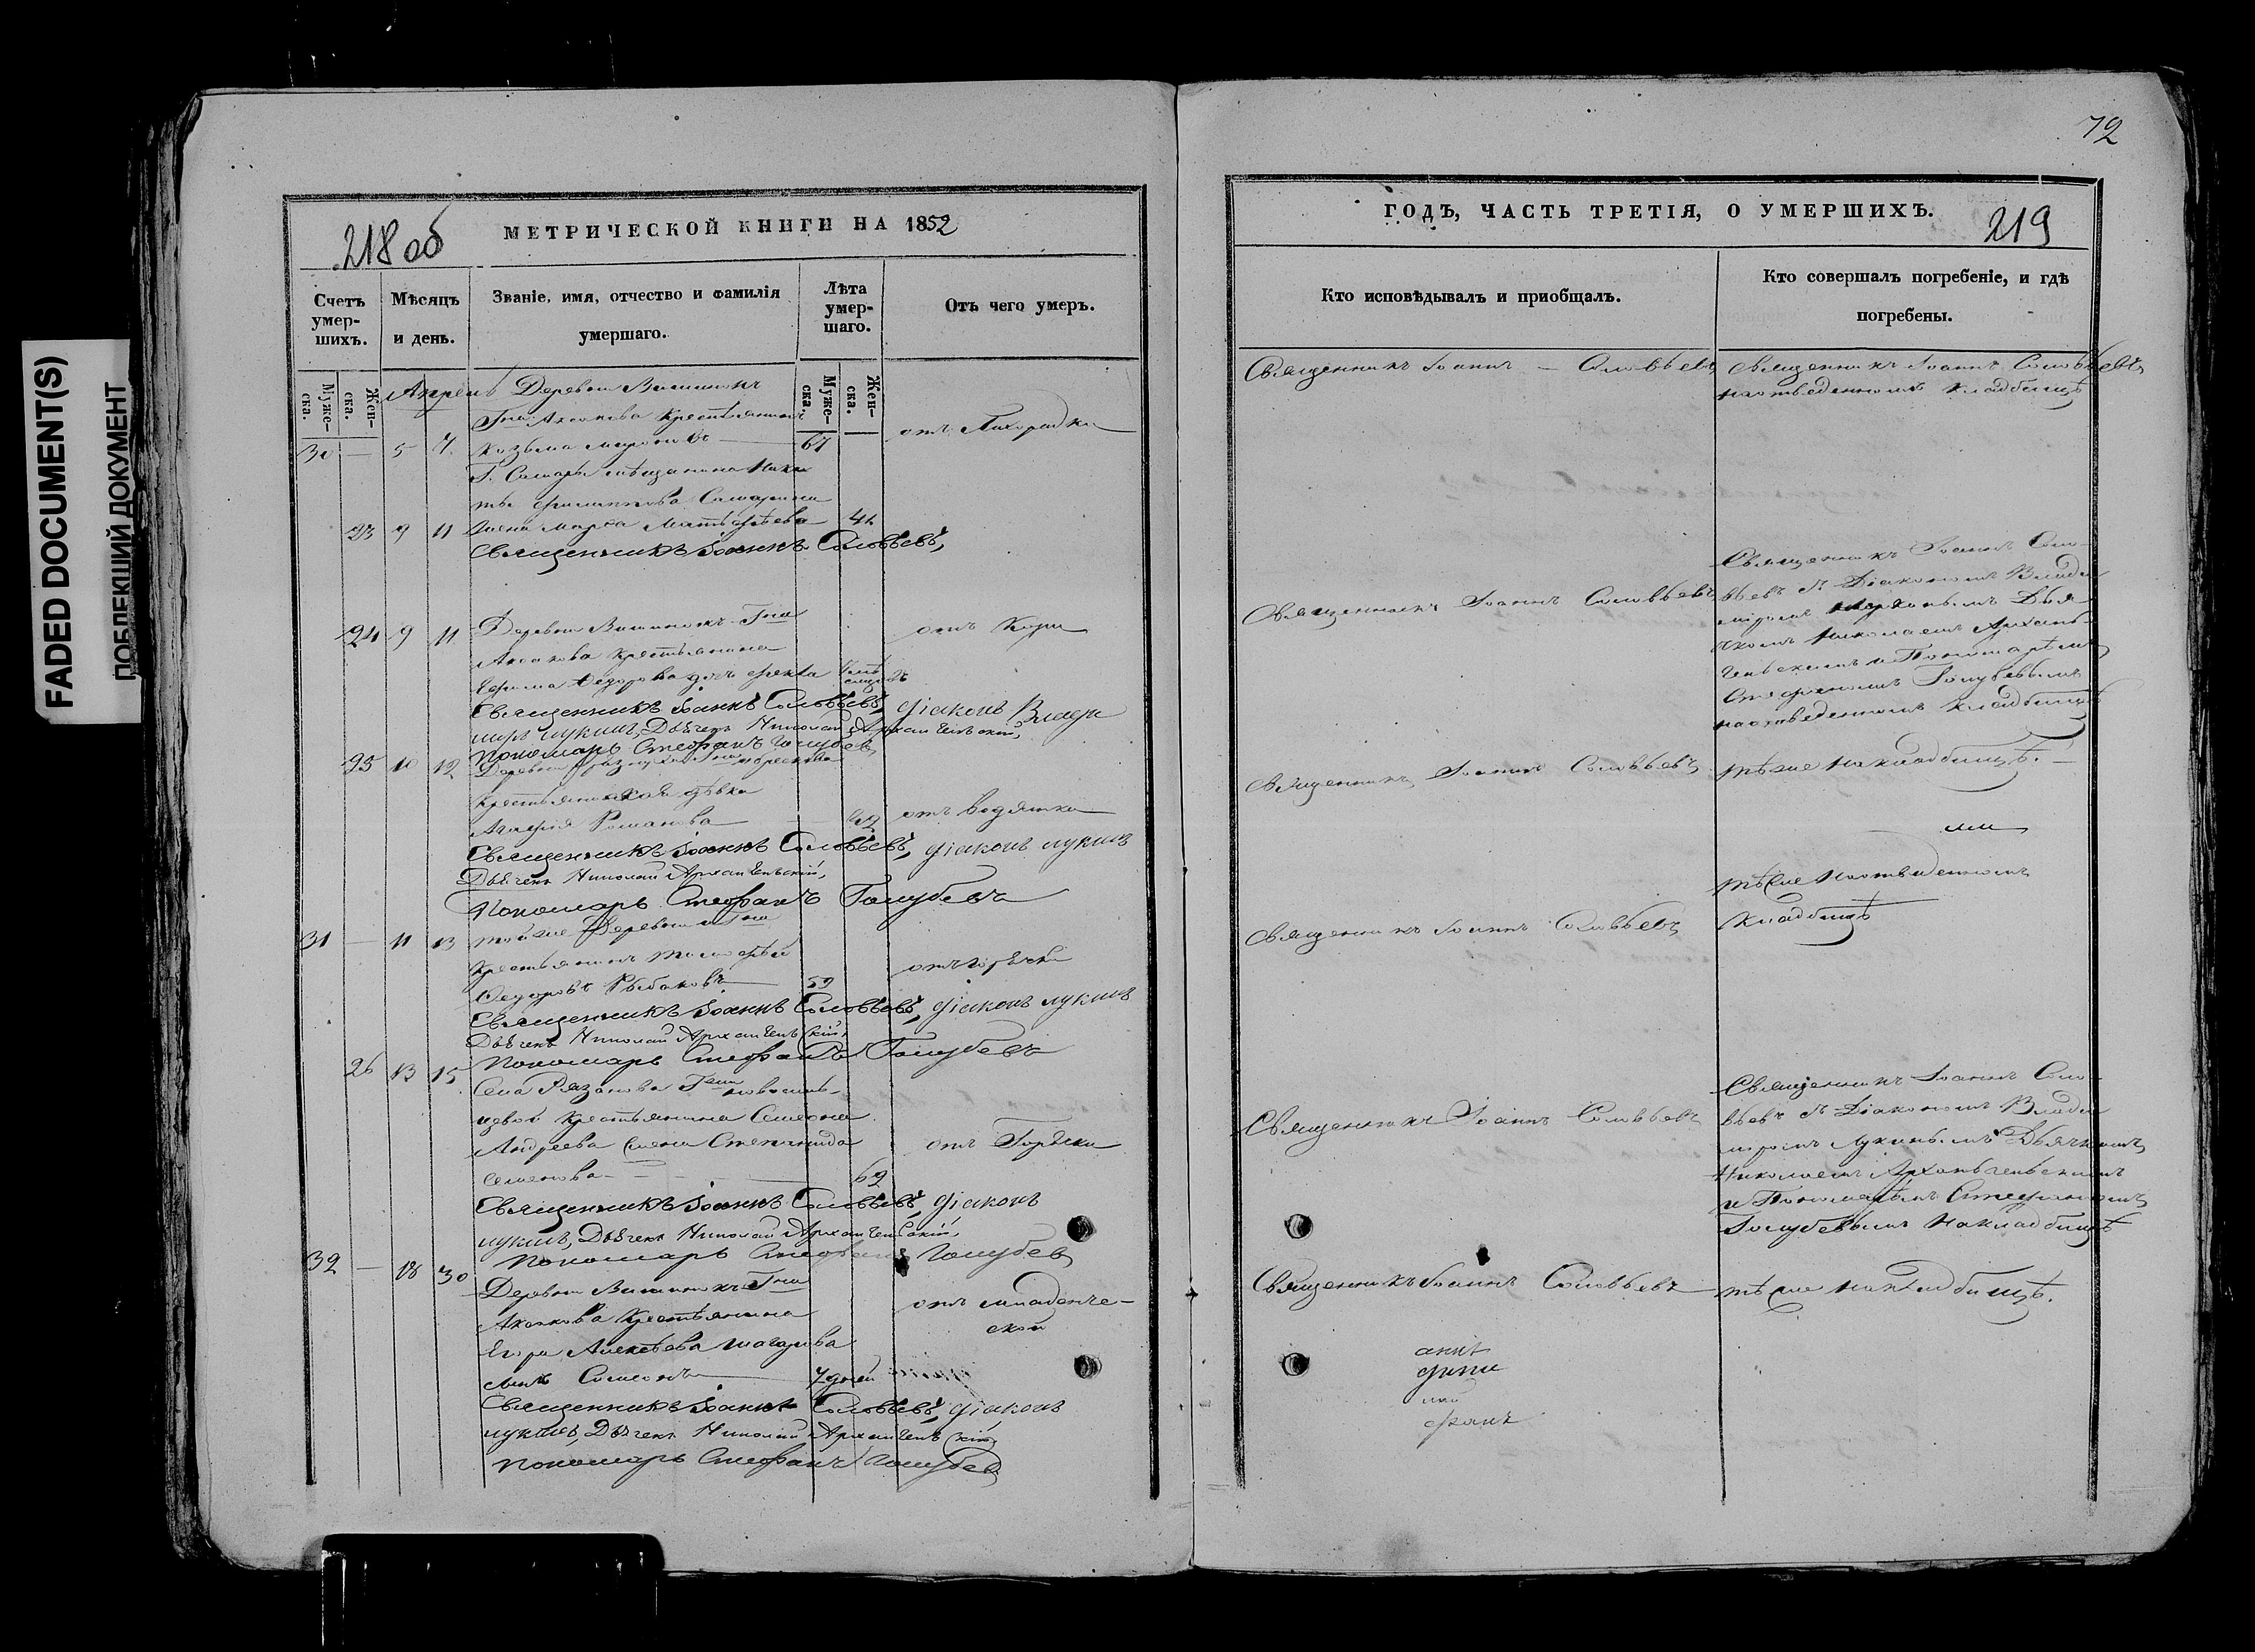 FADED DOCUMENT(S)
ПОБЛЕКШИЙ ДОКУМЕНТ
218 об
МЕТРИЧЕСКОЙ КНИГИ НА 1852
Счетъ умер-шихъ.
Мѣсяцъ и день.
Званіе, имя, отчество и фамилія умершаго.
Лѣта умер-шаго.
Отъ чего умеръ.
Муже-ска.
Жен-ска.
Муже-ска.
Жен-ска.
Апрель Деревни
Гна Аксакова Крестьянинъ
30 — 5 7. Козьма Мироновъ — 67 отъ Лихорадки
Г. Самары мѣщанина Ники
ты Филиппова
23 9 11 жена Марѳа Матвѣева 42
Священникъ Іоаннъ Соловьевъ,
24 9 11 Деревни Гна
Аксакова Крестьянина
Ефима Ѳедорова дочь Фекла отъ Кори
Священникъ Іоаннъ Соловьевъ, Діаконъ Влади
миръ Лукинъ, Дьячекъ Николай Архангельскій,
Пономарь Стефанъ Голубев
25 10 12 Деревни Гна
Крестьянская дѣвка
Романова отъ водянки
Священникъ Іоаннъ Соловьевъ, Діаконъ Лукинъ
Дьячекъ Николай Архангельскій,
Пономарь Стефанъ Голубевъ
31 — 11 13 той же Деревни Гна
Крестьянинъ Тимофей
Ѳедоровъ Рыбаковъ 59 отъ горячки
Священникъ Іоаннъ Соловьевъ, Діаконъ Лукинъ
Дьячекъ Николай Архангельскій,
Пономарь Стефанъ Голубевъ
26 13 15 Села Рязанова
Крестьянина Семена
Андреева жена Степанида отъ Горячки
Семенова — 62
Священникъ Іоаннъ Соловьевъ, Діаконъ
Лукинъ, Дьячекъ Николай Архангельскій,
Пономарь Стефанъ Голубев
32 — 18 30 Деревни Гна
Аксакова Крестьянина отъ младенче-
ской
Егора Алексѣева
сынъ Симеонъ — 7 дней
Священникъ Іоаннъ Соловьевъ, Діаконъ
Лукинъ, Дьячекъ Николай Архангельскій
Пономарь Стефанъ Голубев
72
ГОДЪ, ЧАСТЬ ТРЕТІЯ, О УМЕРШИХЪ.
219
Кто исповѣдывалъ и приобщалъ.
Кто совершалъ погребеніе, и гдѣ погребены.
Священникъ Іоаннъ — Соловьевъ
Священникъ Іоаннъ Соловьевъ
на отведенномъ кладбищѣ
Священникъ Іоаннъ Соловьевъ
Священникъ Іоаннъ Соло
вьевъ съ Діакономъ Влади
міромъ Лукинымъ Дья
чкомъ Николаемъ Архан
гельскимъ и Пономаремъ
Стефаномъ Голубевымъ
на отведенномъ кладбищѣ
Священникъ Іоаннъ Соловьевъ
тѣ же на кладбищѣ.
Священникъ Іоаннъ Соловьевъ
тѣ же на отведенномъ
кладбищѣ
Священникъ Іоаннъ Соловьевъ
Священникъ Іоаннъ Соло
вьевъ съ Діакономъ Влади
міромъ Лукинымъ Дьячкомъ
Николаемъ Архангельскимъ
и Пономаремъ Стефаномъ
Голубевымъ на кладбищѣ
Священникъ Іоаннъ Соловьевъ
тѣ же на кладбищѣ.